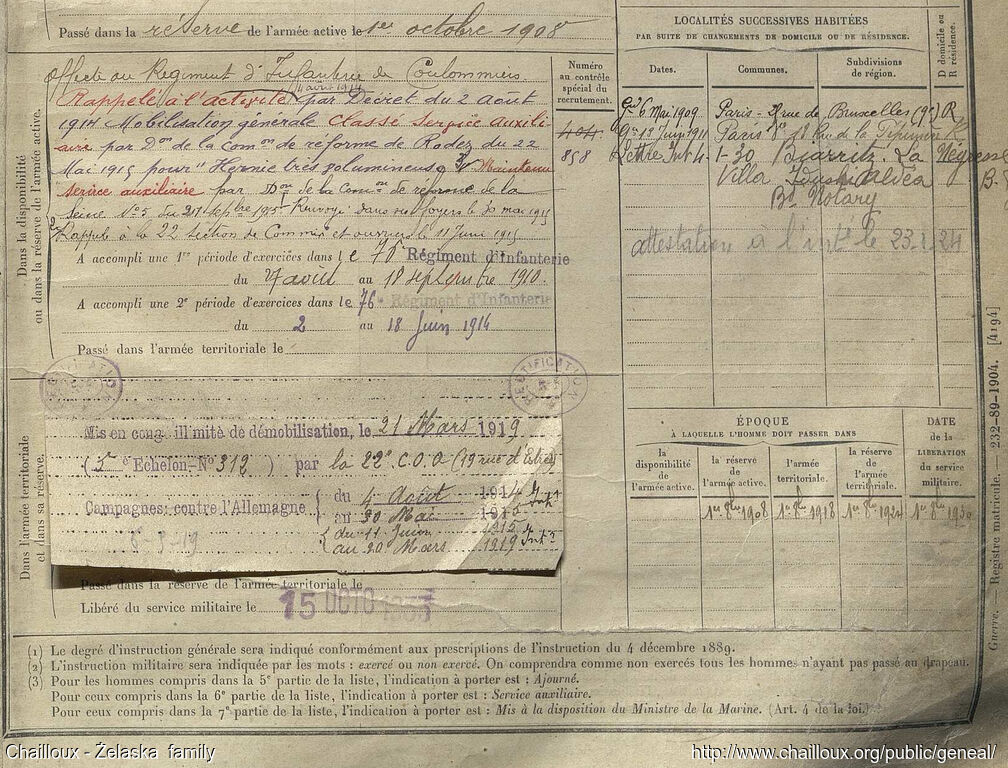 Passé dans la réserve de l'armée active le 1er octobre 1908
Dans la disponibilité
ou dans la réserve de l'armée active.
Affecté au Régiment d'Infanterie de Coulommiers
4 août 1914
Rappelé à l'activité par Décret du 2 Août
1914 Mobilisation générale Classé Service Auxili-
aire par Don de la Comon de réforme de Rodez du 22
Mai 1915 pour "Hernie très volumineuse" Maintenu
service auxiliaire par Don de la Comon de réforme de la
Seine No 5 du 21 septbre 1915 Renvoyé dans ses foyers le 30 mai 1915
Rappelé à la 22 Section de Commis et ouvriers le 11 Juin 1915
A accompli une 1re période d'exercices dans le 76e Régiment d'Infanterie
du 7 août au 18 septembre 1910.
A accompli une 2e période d'exercices dans le 76e Régiment d'Infanterie
du 2 au 18 Juin 1914
Passé dans l'armée territoriale le
Numéro
au contrôle
spécial du
recrutement.
404
858
LOCALITÉS SUCCESSIVES HABITÉES
PAR SUITE DE CHANGEMENTS DE DOMICILE OU DE RÉSIDENCE.
Dates.
Communes.
Subdivisions
de région.
D domicile ou
R résidence.
6 Mai 1909 Paris - rue de Bruxelles (9e) R
Juin 1911 Paris 18 Rue de la Pépinière R
Lettre Int 4-1-30 Biarritz. La Négresse
Villa
Bd Notary
attestation à l'inté le 23.1.24
RECTIFICATION
Dans l'armée territoriale
et dans sa réserve.
Mis en congé illimité de démobilisation, le 21 Mars 1919
(5e Echelon-No 312) par la 22e C.O.A (19 rue d'Estrées)
Campagnes: contre l'Allemagne
du 4 Août 1914 Int
au 30 Mai 1915
du 11 Juin 1915
au 20 Mars 1919 Intr
Passé dans la réserve de l'armée territoriale le
Libéré du service militaire le 15 OCTO
ÉPOQUE
À LAQUELLE L'HOMME DOIT PASSER DANS
la
disponibilité
de
l'armée active.
la réserve
de
l'armée active.
l'armée
territoriale.
la réserve
de
l'armée
territoriale.
DATE
de la
LIBERATION
du service
militaire.
1er 8bre 1908 1er 8bre 1918 1er 8bre 1924 1er 8bre 1930
Guerre Registre matricule.—232-89-1904. [4194]
(1) Le degré d'instruction générale sera indiqué conformément aux prescriptions de l'instruction du 4 décembre 1889.
(2) L'instruction militaire sera indiquée par les mots : exercé ou non exercé. On comprendra comme non exercés tous les hommes n'ayant pas passé au drapeau.
(3) Pour les hommes compris dans la 5e partie de la liste, l'indication à porter est : Ajourné.
Pour ceux compris dans la 6e partie de la liste, l'indication à porter est : Service auxiliaire.
Pour ceux compris dans la 7e partie de la liste, l'indication à porter est : Mis à la disposition du Ministre de la Marine. (Art. 4 de la loi.)
Chailloux - Żelaska family
http://www.chailloux.org/public/geneal/